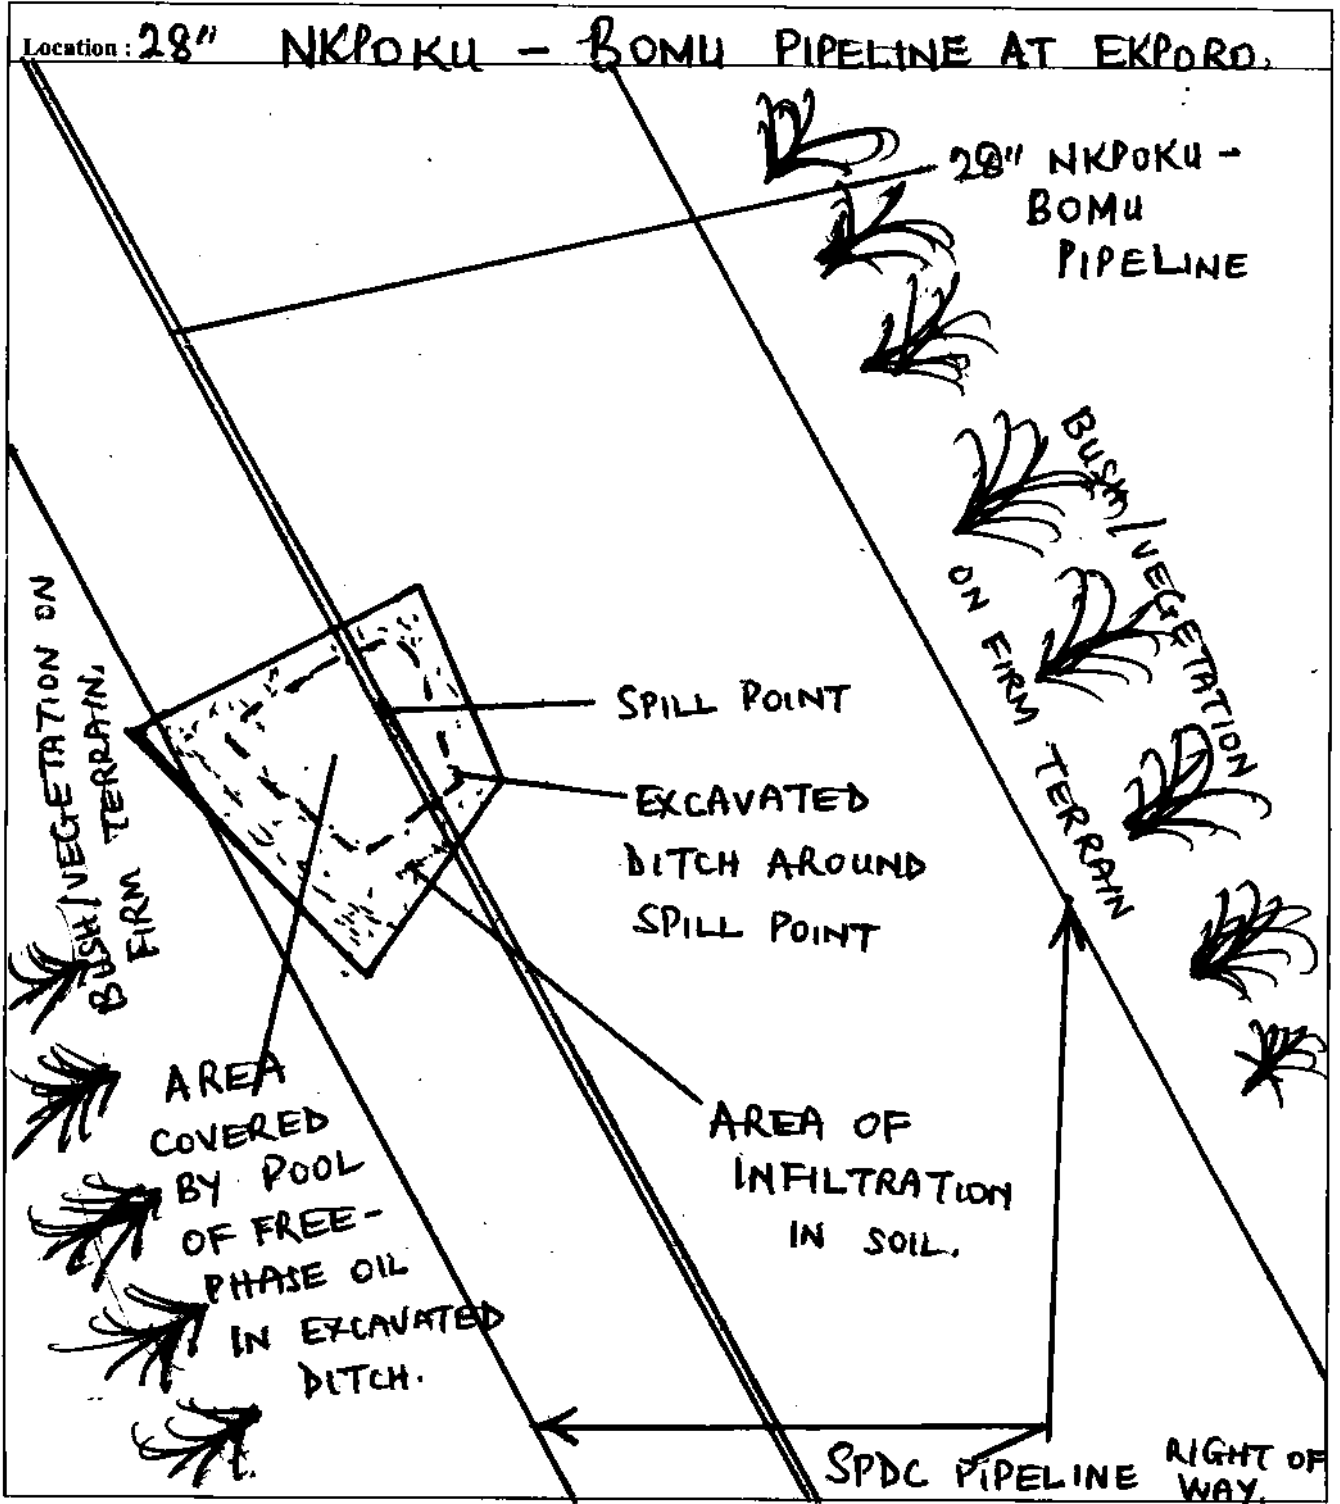 Location : 28" NKPOKU - BOMU PIPELINE AT EKPORO.
28" NKPOKU -
BOMU
PIPELINE
BUSH/VEGETATION
ON FIRM TERRAIN
BUSH/VEGETATION ON
FIRM TERRAIN.
SPILL POINT
EXCAVATED
DITCH AROUND
SPILL POINT
AREA
COVERED
BY POOL
OF FREE-
PHASE OIL
IN EXCAVATED
DITCH.
AREA OF
INFILTRATION
IN SOIL.
SPDC PIPELINE RIGHT OF
WAY.